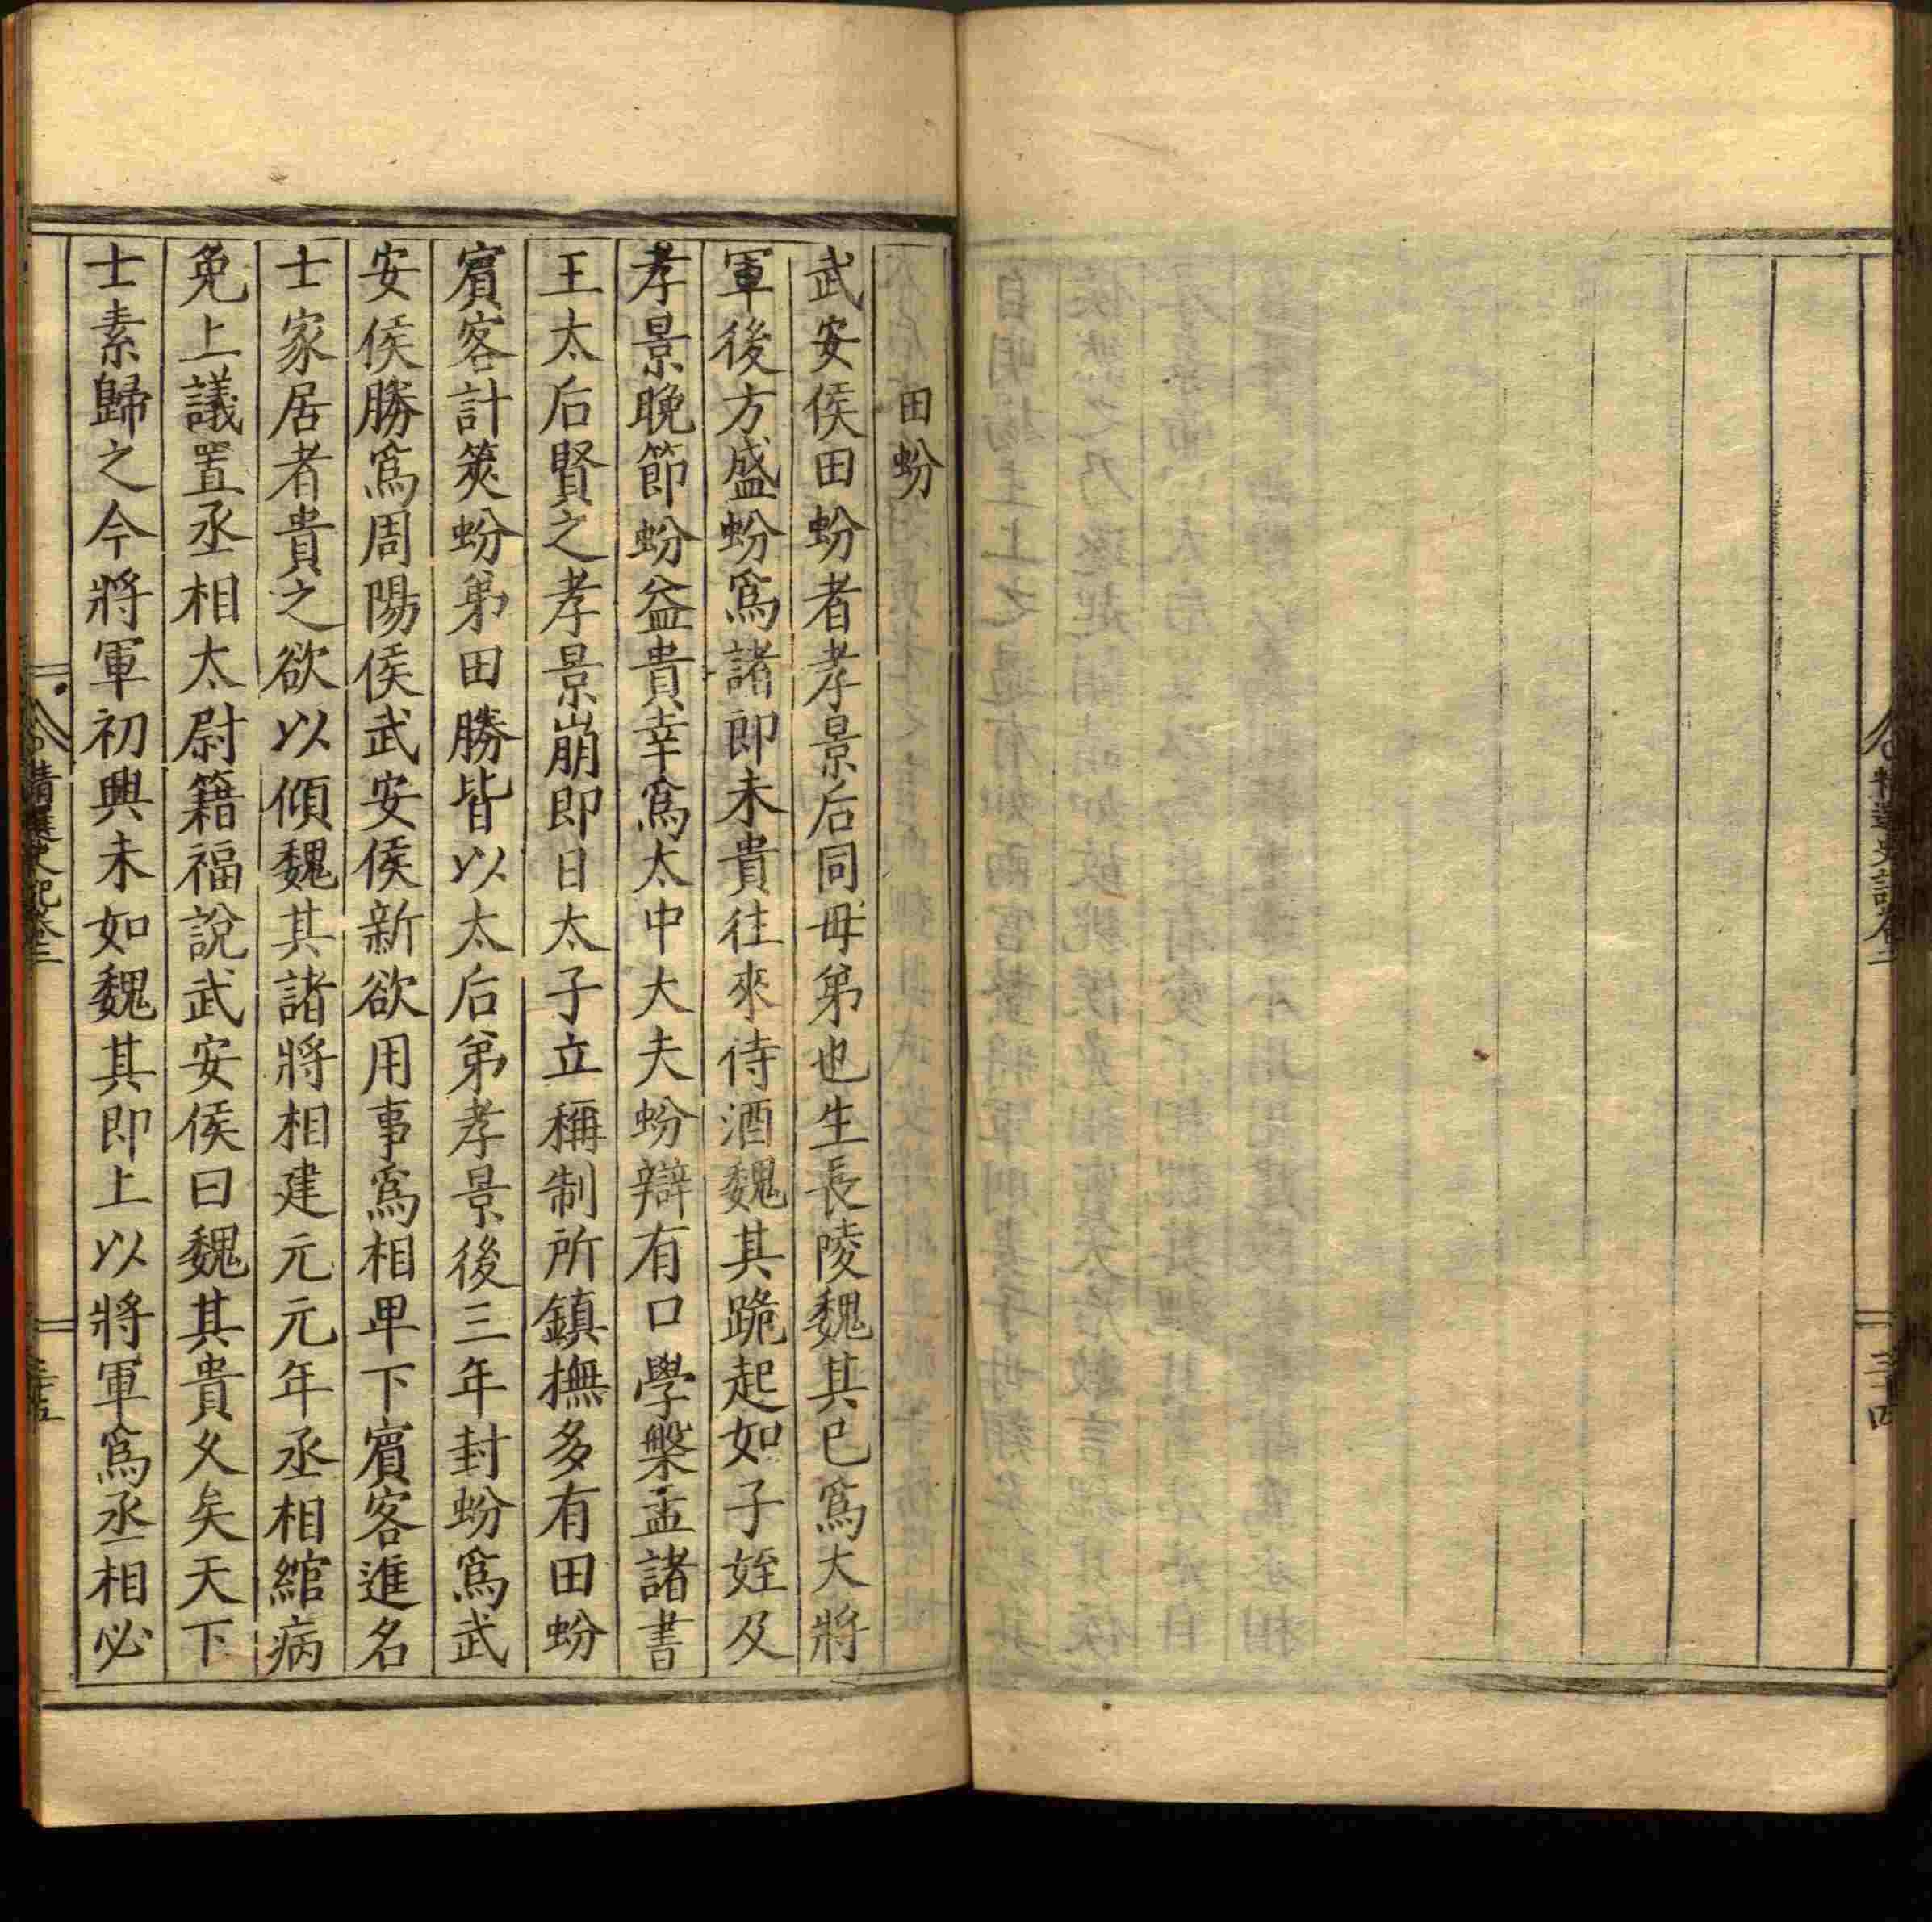 精選史記卷二
三十四
田蚡
武安侯田蚡者孝景后同母弟也生長陵魏其已爲大將
軍後方盛蚡爲諸郎未貴往來待酒魏其跪起如子姪及
孝景晚節蚡益貴幸爲太中大夫蚡辯有口學槃盂諸書
王太后賢之孝景崩即日太子立稱制所鎮撫多有田蚡
賔客計筴蚡弟田勝皆以太后弟孝景後三年封蚡爲武
安侯勝爲周陽侯武安侯新欲用事爲相卑下賔客進名
士家居者貴之欲以傾魏其諸將相建元元年丞相綰病
免上議置丞相太尉籍福說武安侯曰魏其貴久矣天下
士素歸之今將軍初興未如魏其即上以將軍爲丞相必
精選史記卷二
三十五